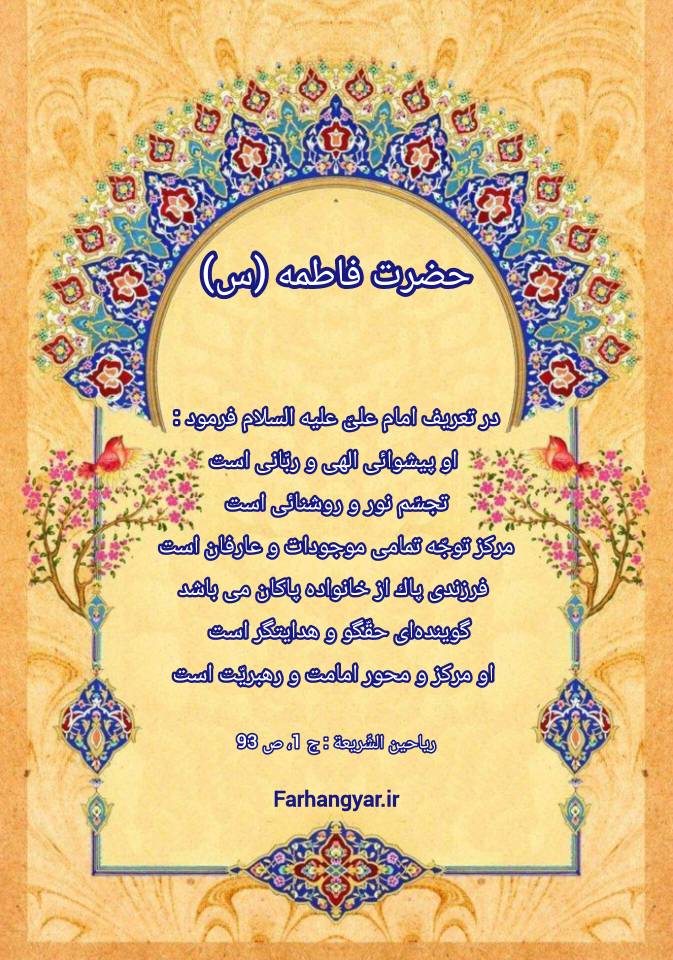 حضرت فاطمه (س)
در تعریف امام علیّ علیه السلام فرمود :
او پیشوائی الهی و ربّانی است
تجسّم نور و روشنائی است
مرکز توجّه تمامی موجودات و عارفان است
فرزندی پاك از خانواده پاکان می باشد
گوینده‌ای حقّگو و هدایتگر است
او مرکز و محور امامت و رهبریّت است
ریاحین الشّریعة : ج 1، ص 93
Farhangyar.ir